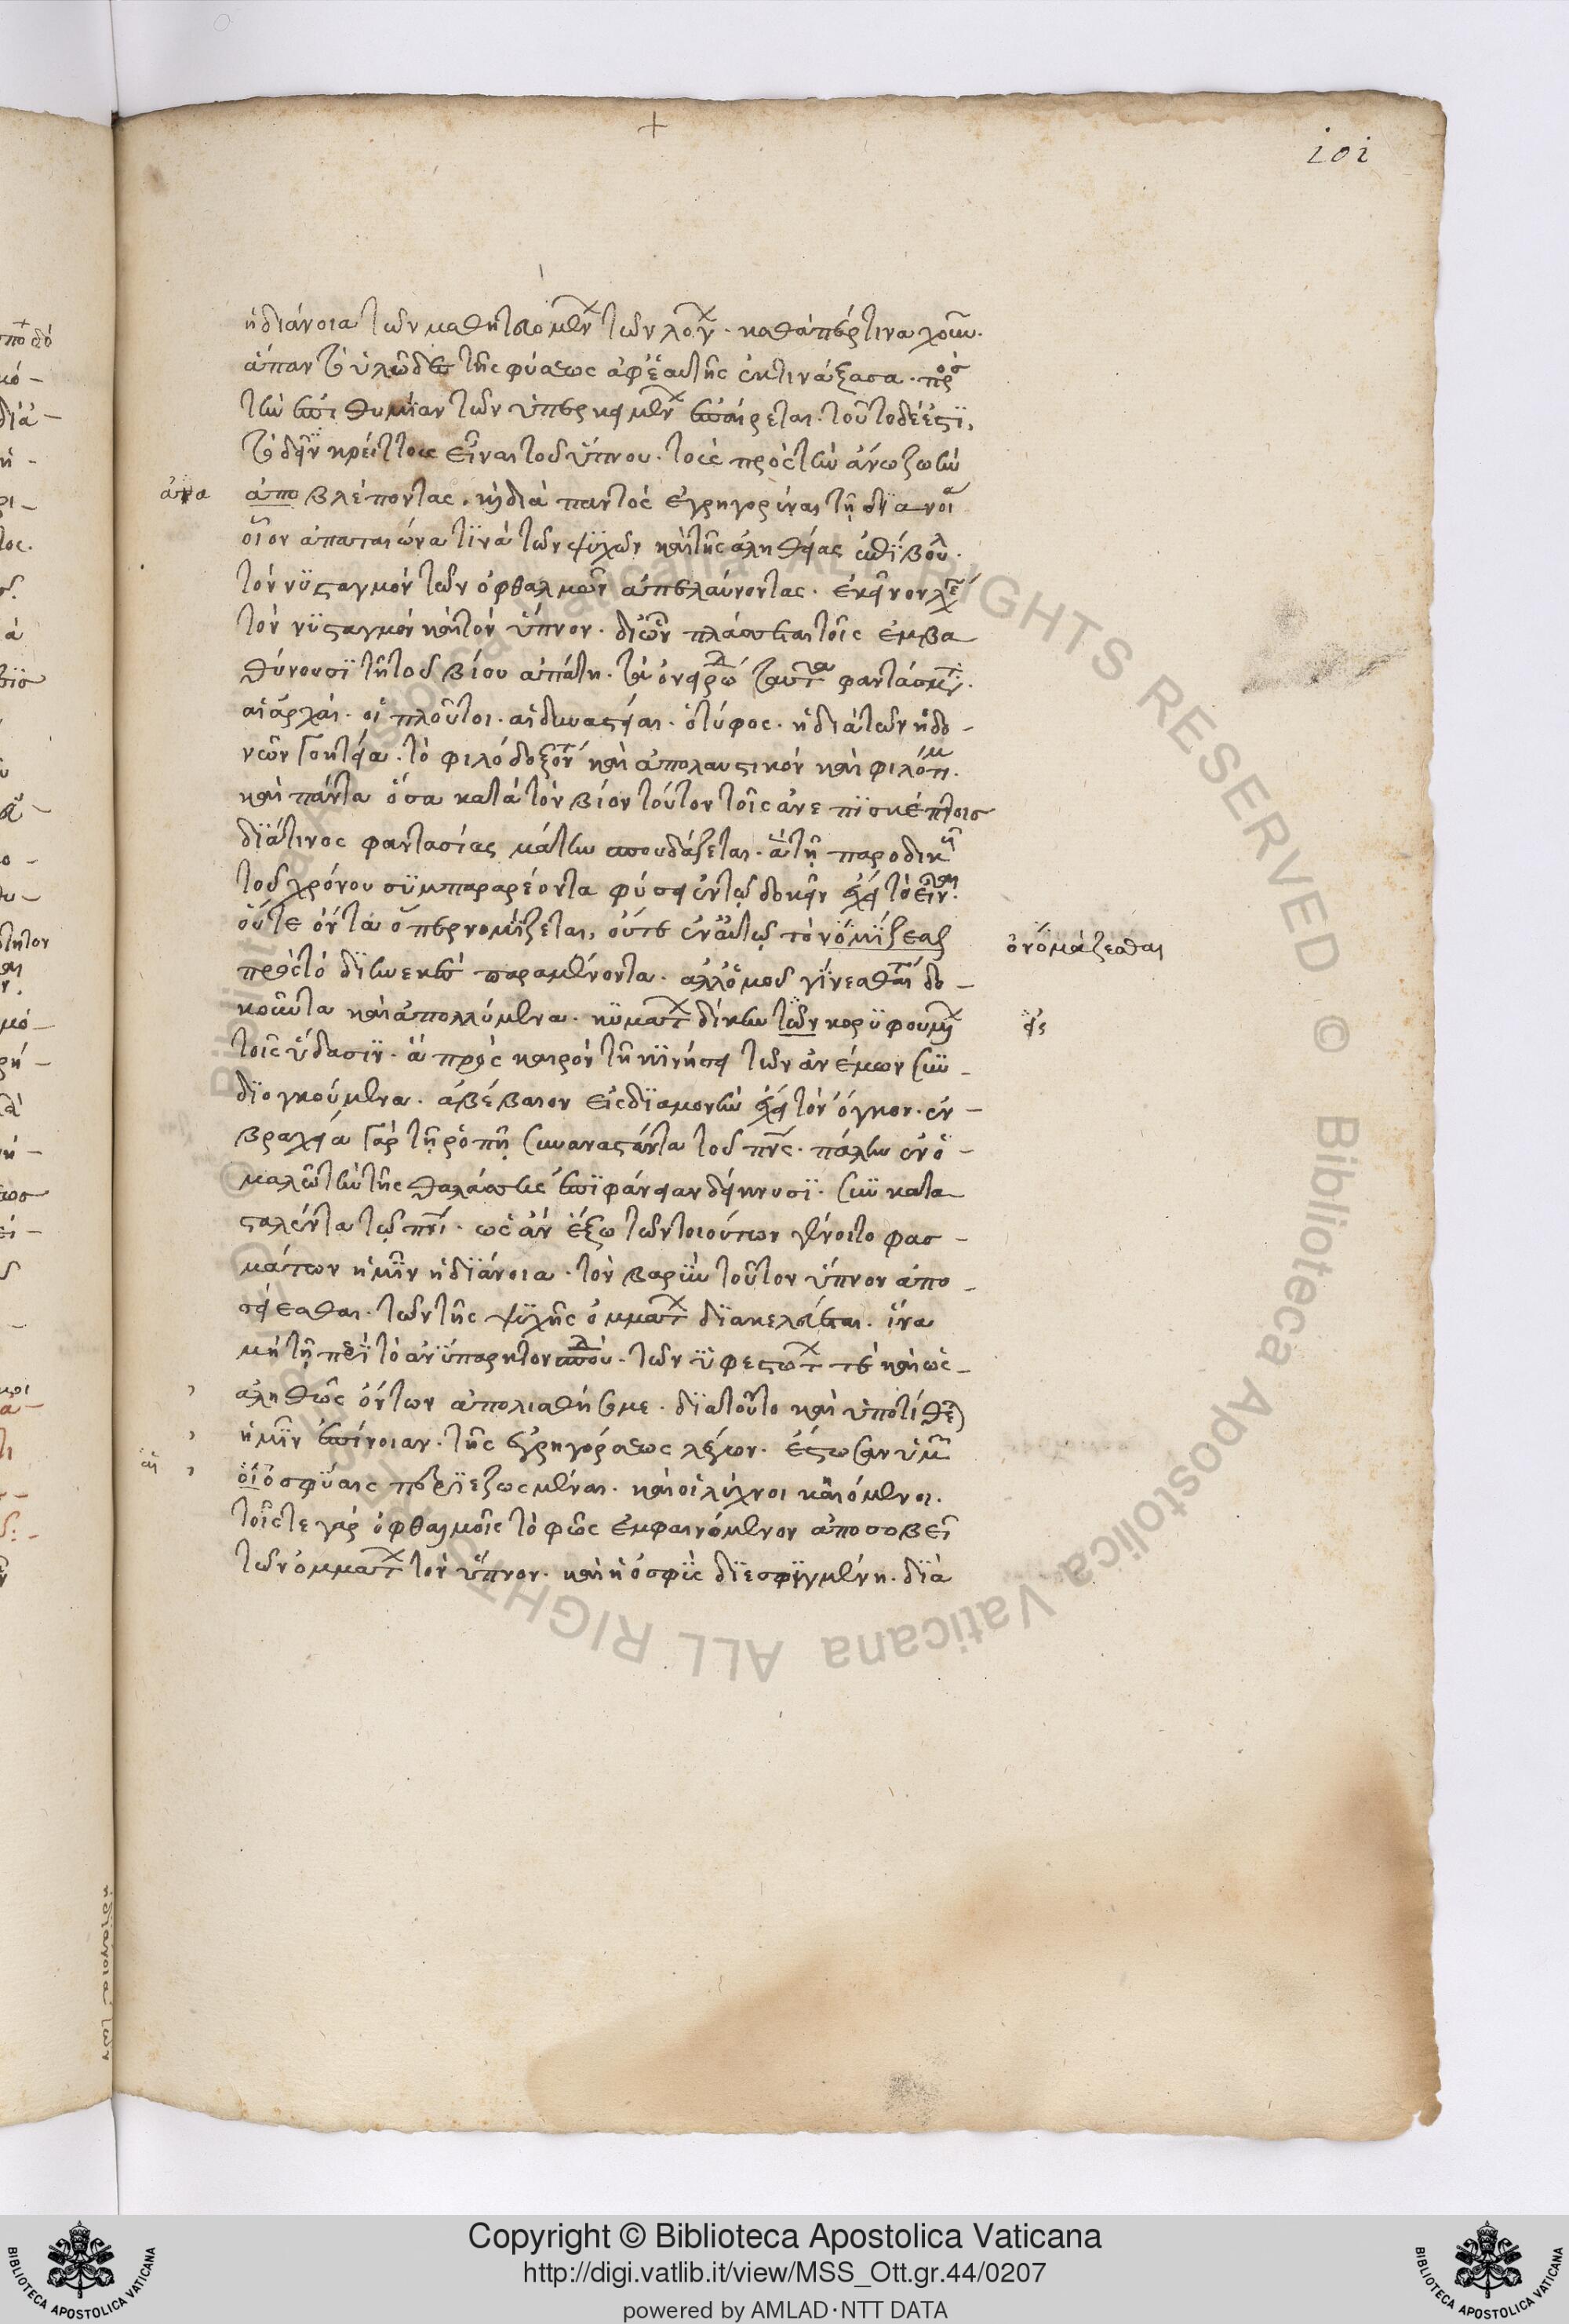 101
ἡ διάνοια τῶν μαθητευομένων τῶν λόγων. καθάπερ τινα χοῦν.
ἅπαν τὸ ὑλῶδες τῆς φύσεως ἀφ' ἑαυτῆς ἐκτινάξασα. πρὸς
τὴν ἐπιθυμίαν τῶν ὑπερκειμένων ἐπαίρεται. τοῦτο δέ ἐστϊ,
τὸ δεῖν κρείττους εἶναι τοῦ ὕπνου. τοὺς πρὸς τὴν ἄνω ζωὴν
ἀποβλέποντας. καὶ διὰ παντὸς ἐγρηγορέναι τῇ διανοίᾳ
οἷον ἀπαταιῶνα τϊνὰ τῶν ψϋχῶν καὶ τῆς ἀληθείας ἐπίβουλον.
τὸν νϋσταγμὸν τῶν ὀφθαλμῶν ἀπελαύνοντας. ἐκεῖνον λέγω
τὸν νϋσταγμὸν καὶ τὸν ὕπνον. δι' ὧν πλάσσεται τοῖς ἐμβα
θύνουσϊ τῇ τοῦ βίου ἀπάτῃ. τὰ ὀνειρώδη ταῦτα φαντάσματα.
αἱ ἀρχαὶ. οἱ πλοῦτοι. αἱ δυναστεῖαι. ὁ τύφος. ἡ διὰ τῶν ἡδο-
νῶν γοητεία. τὸ φιλόδοξόν τε καὶ ἀπολαυστικὸν καὶ φιλότιμον.
καὶ πάντα ὅσα κατὰ τὸν βίον τοῦτον τοῖς ἀνεπϊσκέπτοις
διά τινος φαντασίας μάτην σπουδάζεται. ἃ τῇ παροδικῇ
τοῦ χρόνου σϋμπαραρέοντα φύσει ἐν τῷ δοκεῖν ἔχει τὸ εἶναι.
οὔτε ὄντα ὅπερ νομίζεται, οὔτε ἐν αὐτῷ τὸ νομίζεσθαι
ὀνομάζεσθαι
πρὸς τὸ διηνεκὲς παραμένοντα. ἀλλ' ὁμοῦ γίνεσθαί τε δο-
κοῦντα καὶ ἀπολλύμενα. κυμάτων δίκην τῶν κορϋφουμένων
τοῖς ὕδασϊν. ἃ πρὸς καιρὸν τῇ κϊνήσει τῶν ἀνέμων συν-
διογκούμενα. ἀβέβαιον εἰς διαμονὴν ἔχει τὸν ὄγκον. ἐν-
βραχείᾳ γὰρ τῇ ῥοπῇ συναναστάντα τοῦ πνς. πάλιν ἐν ὁ-
μαλῷ τὴν τῆς θαλάσσης ἐπϊφάνειαν δείκνυσϊ. συν κατα
σταλέντα τῷ πνι. ὡς ἂν ἔξω τῶν τοιούτων γένοιτο φασ-
μάτων ἡμῖν ἡ διάνοια. τὸν βαρὺν τοῦτον ὕπνον ἀπο-
σείεσθαι. τῶν τῆς ψϋχῆς ὀμμάτων διακελεύεται. ἵνα
μὴ τῇ περὶ τὸ ἀνϋπαρκτον σπουδῇ. τῶν ὑφεστώτων τε καὶ ὡς-
ἀληθῶς ὄντων ἀπολισθήσωμεν. διὰ τοῦτο καὶ ὑποτίθεται
ἡμῖν ἐπίνοιαν. τῆς ἐγρηγόρσεως λέγων. ἔστωσαν ὑμῶν
οἱ ὀσφϋαις περιεζωσμέναι. καὶ οἱ λύχνοι καιόμενοι.
αἱ
τοῖς τε γὰρ ὀφθαλμοῖς τὸ φῶς ἐμφαινόμενον ἀποσοβεῖ
τῶν ὀμμάτων τὸν ὕπνον. καὶ ἡ ὀσφὺς διεσφιγμένη. διὰ
Copyright © Biblioteca Apostolica Vaticana
http://digi.vatlib.it/view/MSS_Ott.gr.44/0207
powered by AMLAD·NTT DATA